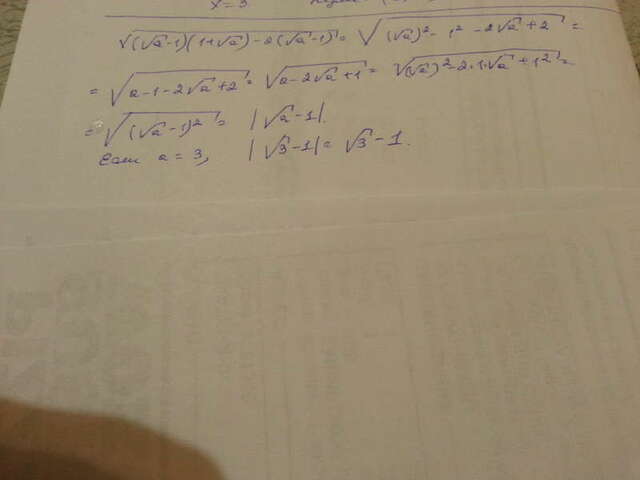 x = 3
√((√a-1)(1+√a)-2(√a-1)) = √((√a)²-1²-2√a+2) =
= √(a-1-2√a+2) = √(a-2√a+1) = √((√a)²-2·1·√a+1²) =
= √((√a-1)²) = |√a-1|.
Если a = 3, |√3-1| = √3-1.